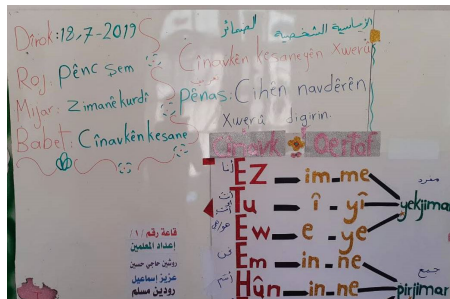 Dîrok: 18,7-2019
Roj: Pênc Şem
Mijar: Zimanê kurdî
Babet: Cînavkên kesane
الضمائر الشخصية الأساسية
Cînavkên kesane yên Xwerû
Pênas: Cihên navdêrên
Xwerû digirin.
Cînavk Qertaf
أنا EZ — im - me
أنت Tu — î - yî
هو/هي Ew — e - ye
مفرد yekjimar
نحن Em — in - ne
أنتم Hûn — in - ne
جمع pirjimar
قاعة رقم /١/
إعداد المعلمين
روشين حاجي حسين
عزيز إسماعيل
رودين مسلم